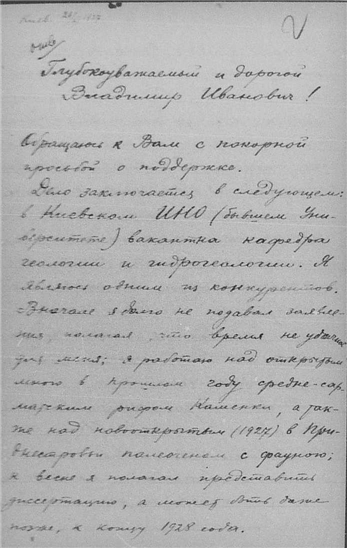 Киев
2
Глубокоуважаемый и дорогой
Владимир Иванович!
Обращаюсь к Вам с покорной
просьбой о поддержке.
Дело заключается в следующем:
в Киевском ИНО (бывшем Уни-
верситете) вакантна кафедра
геологии и гидрогеологии. Я
являюсь одним из конкурентов.
Вначале я долго не подавал заявле-
ния полагая, что время не удачно
для меня; я работаю над открытым
мною в прошлом году средне-сар-
матским рифом Каменки, а так-
же над новооткрытым (1927) в При-
днестровьи палеогеном с фауной;
к весне я полагал представить
диссертацию, а может быть даже
позже, к концу 1928 года.